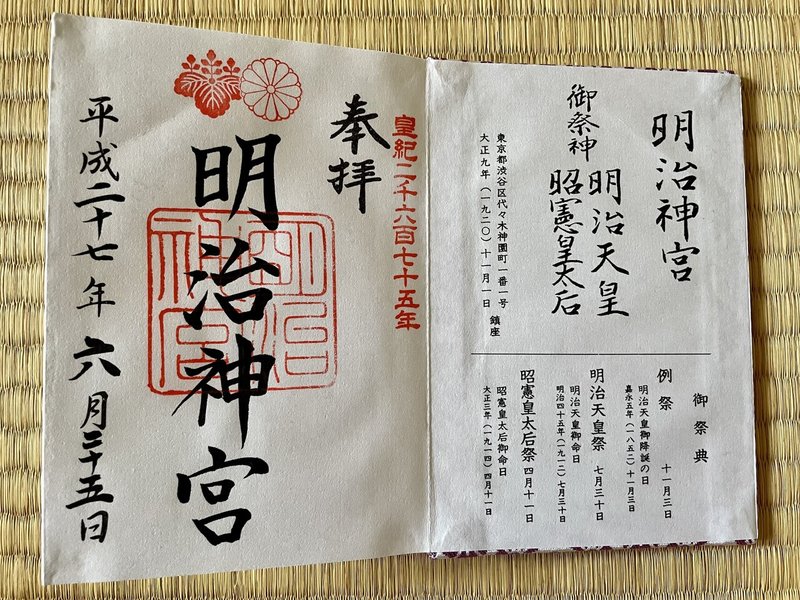 明治神宮
御祭神
明治天皇
昭憲皇太后
東京都渋谷区代々木神園町一番一号
大正九年(一九二〇)十一月一日 鎮座
御祭典
例祭 十一月三日
明治天皇御降誕の日
嘉永五年(一八五二)十一月三日
明治天皇祭 七月三十日
明治天皇御命日
明治四十五年(一九一二)七月三十日
昭憲皇太后祭 四月十一日
昭憲皇太后御命日
大正三年(一九一四)四月十一日
皇紀二千六百七十五年
奉拝
明治神宮
明治神宮
平成二十七年 六月二十五日